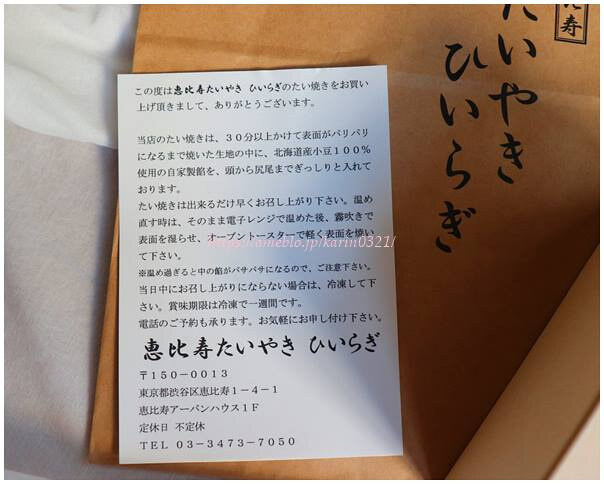 この度は恵比寿たいやき ひいらぎのたい焼きをお買い
上げ頂きまして、ありがとうございます。
当店のたい焼きは、３０分以上かけて表面がパリパリ
になるまで焼いた生地の中に、北海道産小豆１００％
使用の自家製餡を、頭から尻尾までぎっしりと入れて
おります。
たい焼きは出来るだけ早くお召し上がり下さい。温め
直す時は、そのまま電子レンジで温めた後、霧吹きで
表面を湿らせ、オーブントースターで軽く表面を焼い
て下さい。
※温め過ぎると中の餡がパサパサになるので、ご注意下さい。
当日中にお召し上がりにならない場合は、冷凍して下
さい。賞味期限は冷凍で一週間です。
電話のご予約も承ります。お気軽にお申し付け下さい。
恵比寿たいやき ひいらぎ
〒１５０－００１３
東京都渋谷区恵比寿１－４－１
恵比寿アーバンハウス１Ｆ
定休日 不定休
ＴＥＬ ０３－３４７３－７０５０
比寿
たいやき
ひいらぎ
https://ameblo.jp/karin0321/